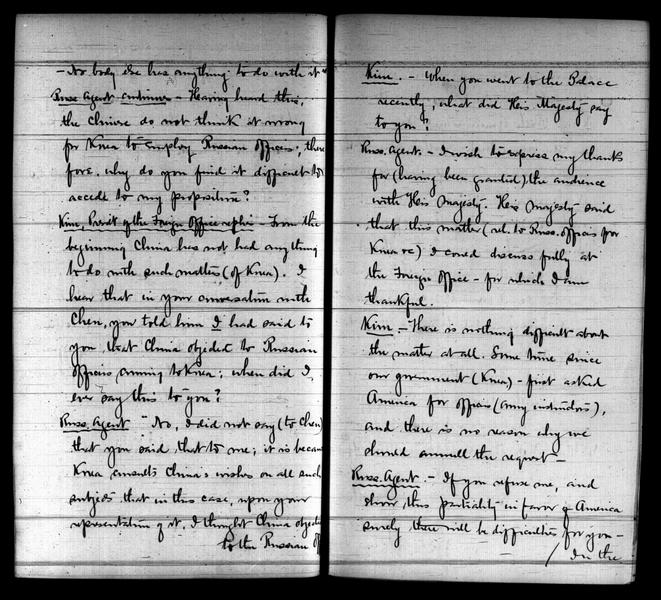 - No body else has anything to do with it"
Russ. Agent continues - Having heard this,
the Chinese do not think it wrong
for Korea to employ Russian officers; there
fore, why do you find it difficult to
accede to my proposition?
Kim, Presidt of the Foreign Office replies - From the
beginning China has not had anything
to do with such matters (of Korea). I
hear that in your conversation with
Chen, you told him I had said to
you that China objected to Russian
officers coming to Korea; when did I
ever say this to you?
Russ. Agent "No, I did not say (to Chen)
that you said that to me; it is because
Korea consults China's wishes on all such
subjects that in this case, upon your
representation of it, I thought China objected
to the Russian of
Kim. - When you went to the Palace
recently, what did His Majesty say
to you?
Russ. Agent - I wish to express my thanks
for (having been granted) the audience
with His Majesty. His Majesty said
that this matter (rel. to Russ. officers for
Korea &c) I could discuss fully at
the Foreign Office - for which I am
thankful.
Kim - There is nothing difficult about
the matter at all. Some time since
our government (Korea) - first asked
America for officers (army instructors),
and there is no reason why we
should annull the request -
Russ. Agent. - If you refuse me, and
show this partiality in favor of America
surely there will be difficulties for you -
In the